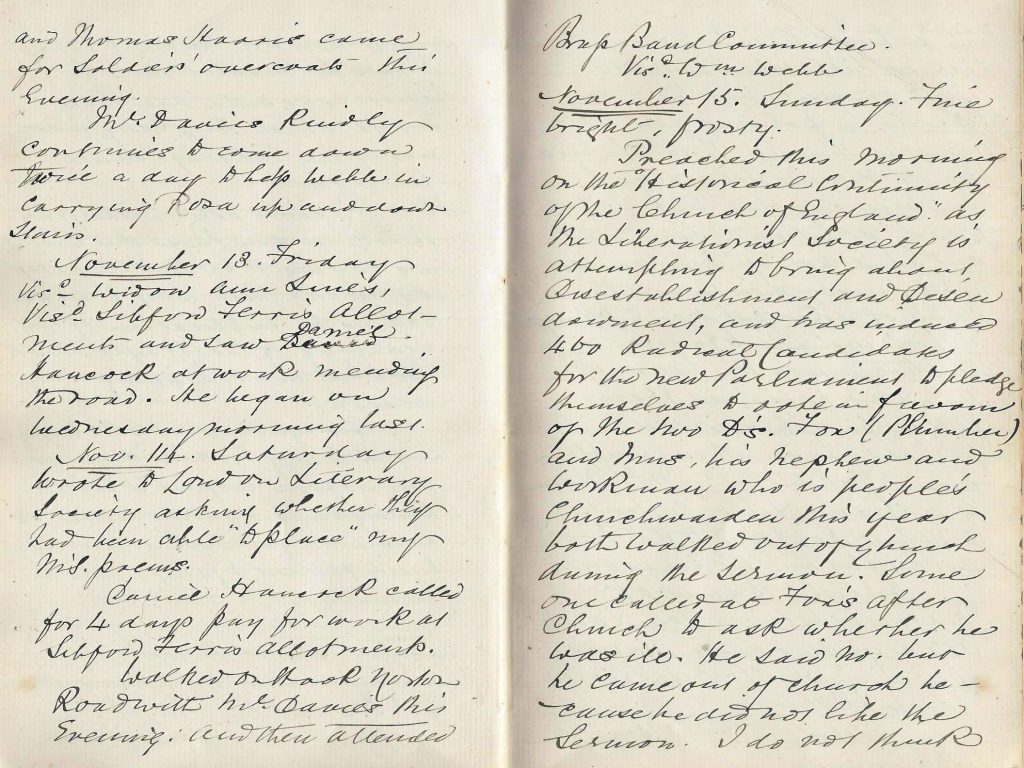 and Thomas Harris came
for Soldiers' overcoats this
Evening.
Mr. Davies Kindly
continues to come down
twice a day to help Webb in
carrying Rosa up and down
Stairs.
November 13. Friday
Visd. Widow Ann Lines,
Visd. Sibford Ferris Allot-
ments and saw Daniel
Hancock at work mending
the road. He began on
Wednesday morning last.
Nov. 14. Saturday
Wrote to London Literary
Society asking whether they
had been able "to place" my
MS. poems.
Daniel Hancock called
for 4 days pay for work at
Sibford Ferris Allotments.
Walked on Hook Norton
Road with Mr. Davies this
Evening: and then attended
Brass Band Committee.
Visd. Wm Webb
November 15. Sunday. Fine
bright, frosty.
Preached this morning
on the "Historical Continuity
of the Church of England" as
the Liberationist Society is
attempting to bring about
Disestablishment and Disen
dowment, and has induced
400 Radical Candidates
for the new Parliament to pledge
themselves to vote in favour
of the two Ds. Fox (Plumber)
and his nephew and
workman who is people's
Churchwarden this year
both walked out of church
during the sermon. Some
one called at Fox's after
Church to ask whether he
was ill. He said no. but
he came out of church be-
cause he did not like the
Sermon. I do not think